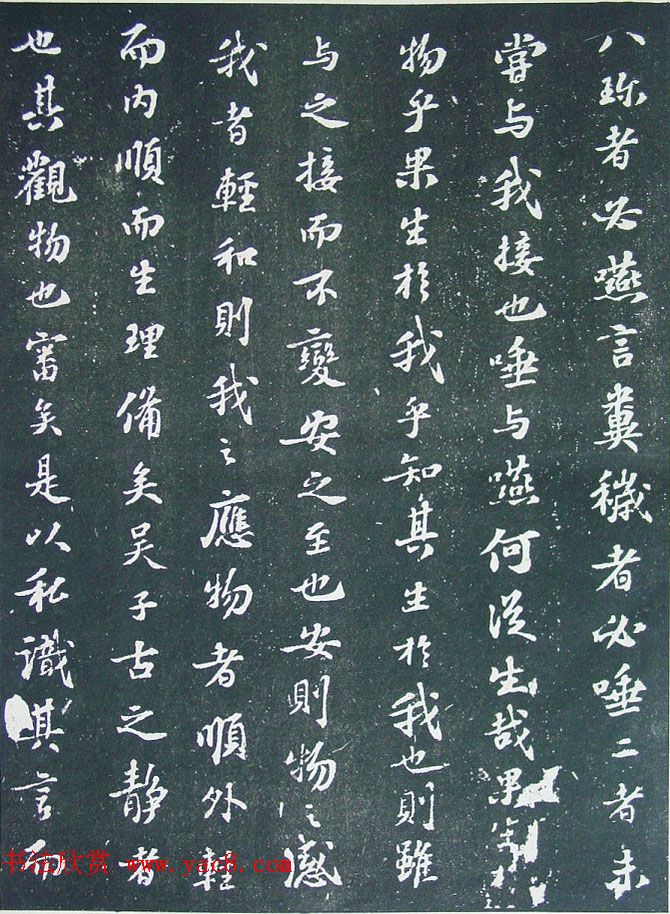 八珎者必嚥言糞穢者必唾二者未
嘗与我接也唾与嚥何從生哉果生
物乎果生於我乎知其生於我也則雖
与之接而不變安之至也安則物之感
我者輕和則我之應物者順外輕
而内順而生理備矣吴子古之静者
也其觀物也審矣是以私識其言而
书法欣赏 www.yac8.com